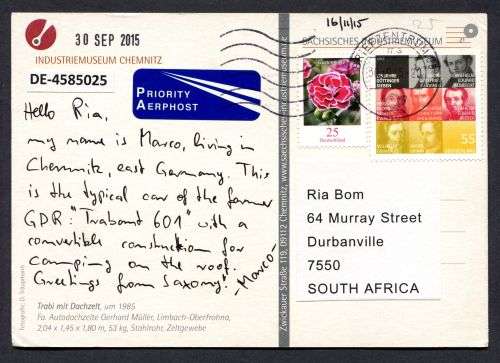 16/11/15
25
30 SEP 2015
INDUSTRIEMUSEUM CHEMNITZ
DE-4585025
PRIORITY
AERPHOST
Hello Ria,
my name is Marco, living in
Chemnitz, east Germany. This
is the typical car of the former
GDR: "Trabant 601" with a
convertible construction for
camping on the roof.
Greetings from Saxony!
-Marco-
Trabi mit Dachzelt, um 1985
Fa. Autodachzelte Gerhard Müller, Limbach-Oberfrohna,
2,04 x 1,45 x 1,80 m, 53 kg, Stahlrohr, Zeltgewebe
SÄCHSISCHES INDUSTRIEMUSEUM
Zwickauer Straße 119, 09112 Chemnitz, www.saechsisches-industriemuseum.de
25
Deutschland
175 JAHRE
GÖTTINGER
SIEBEN
55
Ria Bom
64 Murray Street
Durbanville
7550
SOUTH AFRICA